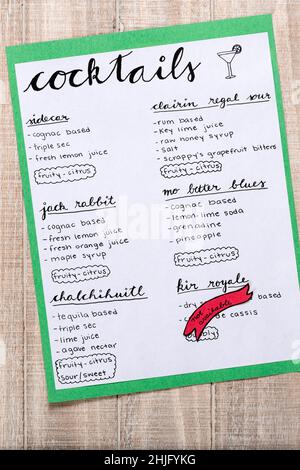 cocktails
sidecar
- cognac based
- triple sec
- fresh lemon juice
fruity-citrus
jack rabbit
- cognac based
- fresh lemon juice
- fresh orange juice
- maple syrup
fruity-citrus
chalchihuitl
- tequila based
- triple sec
- lime juice
- agave nectar
fruity-citrus
sour/sweet
clairin regal sour
- rum based
- Key lime juice
- raw honey syrup
- Salt
- scrappy's grapefruit bitters
fruity-citrus
mo better blues
- cognac based
- lemon-lime soda
- grenadine
- pineapple
fruity-citrus
kir royale
- dry based
- cassis
not available
alamy
Image ID: 2HJFYKG
www.alamy.com